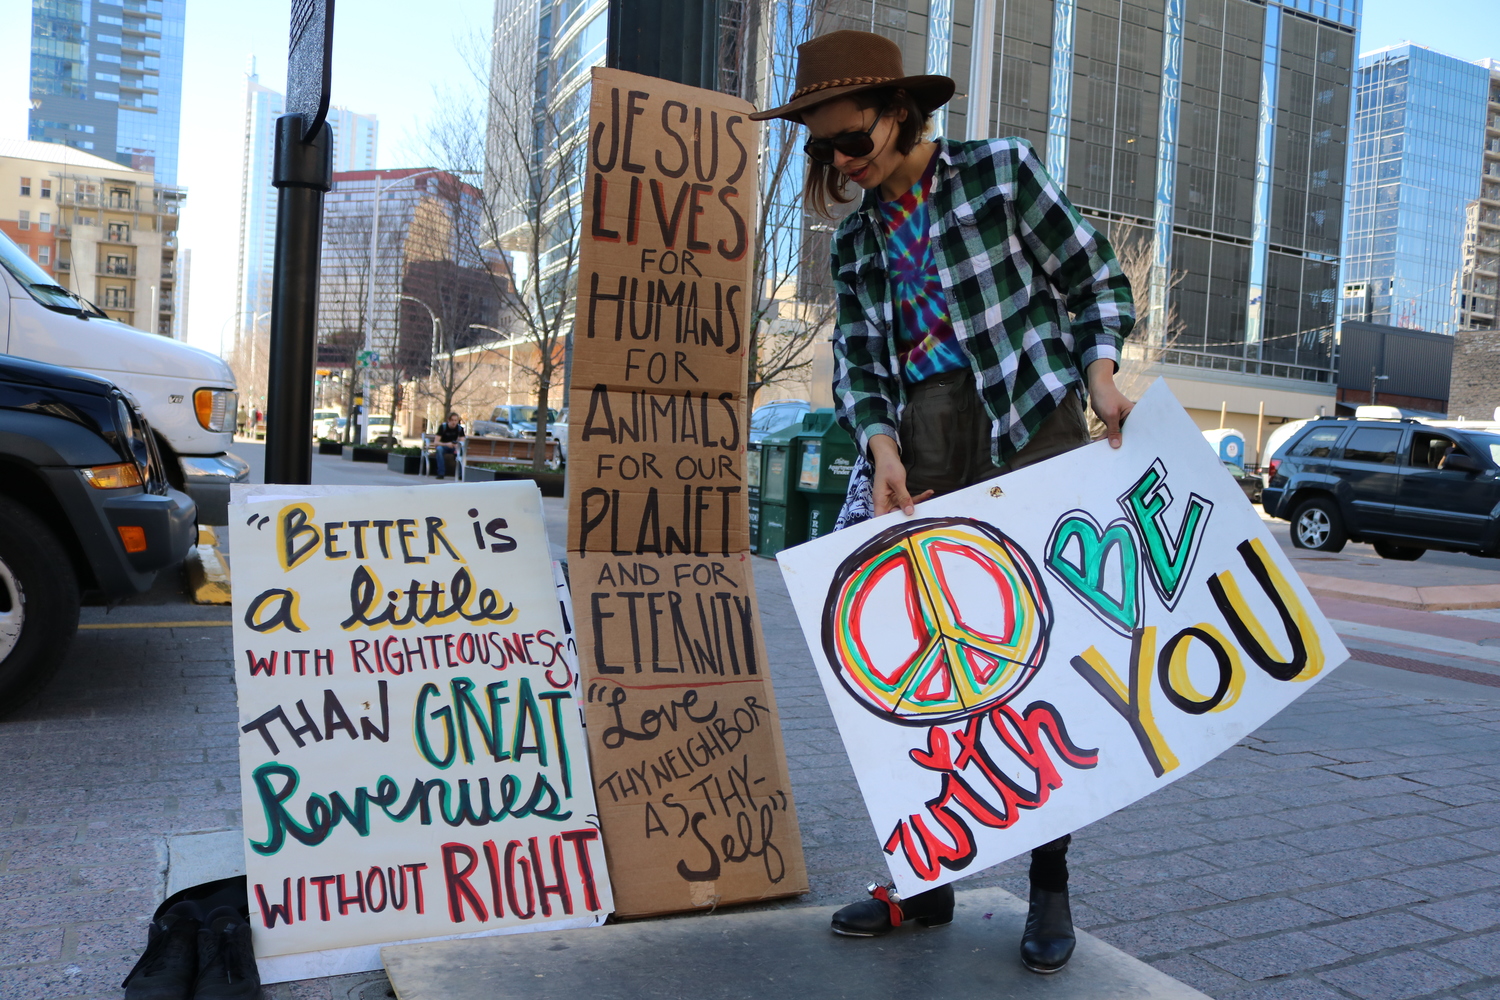 "BETTER is
a little
WITH RIGHTEOUSNESS
THAN GREAT
Revenues!
WITHOUT RIGHT
JESUS
LIVES
FOR
HUMANS
FOR
ANIMALS,
FOR OUR
PLANET,
AND FOR
ETERNITY
"Love
THY NEIGHBOR
AS THY-
Self"
BE
with YOU